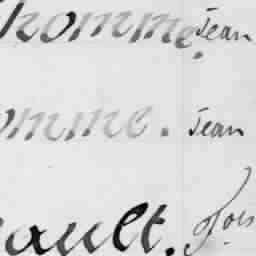 homme. Jean
omme. Jean
ault.